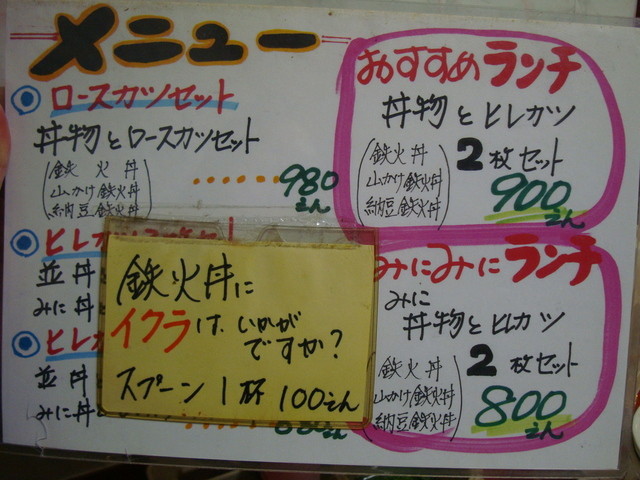 メニュー
◎ ロースカツセット
丼物とロースカツセット
(鉄火丼
山かけ鉄火丼
納豆鉄火丼)
......980
えん
◎ ヒレカツ
並丼
みに丼
◎ ヒレ
並丼
みに丼
えん
おすすめランチ
丼物とヒレカツ
2枚セット
(鉄火丼
山かけ鉄火丼
納豆鉄火丼)
900
えん
みにみにランチ
みに
丼物とヒレカツ
2枚セット
(鉄火丼
山かけ鉄火丼
納豆鉄火丼)
800
えん
鉄火丼に
イクラは、いかが
ですか?
スプーン1杯100えん